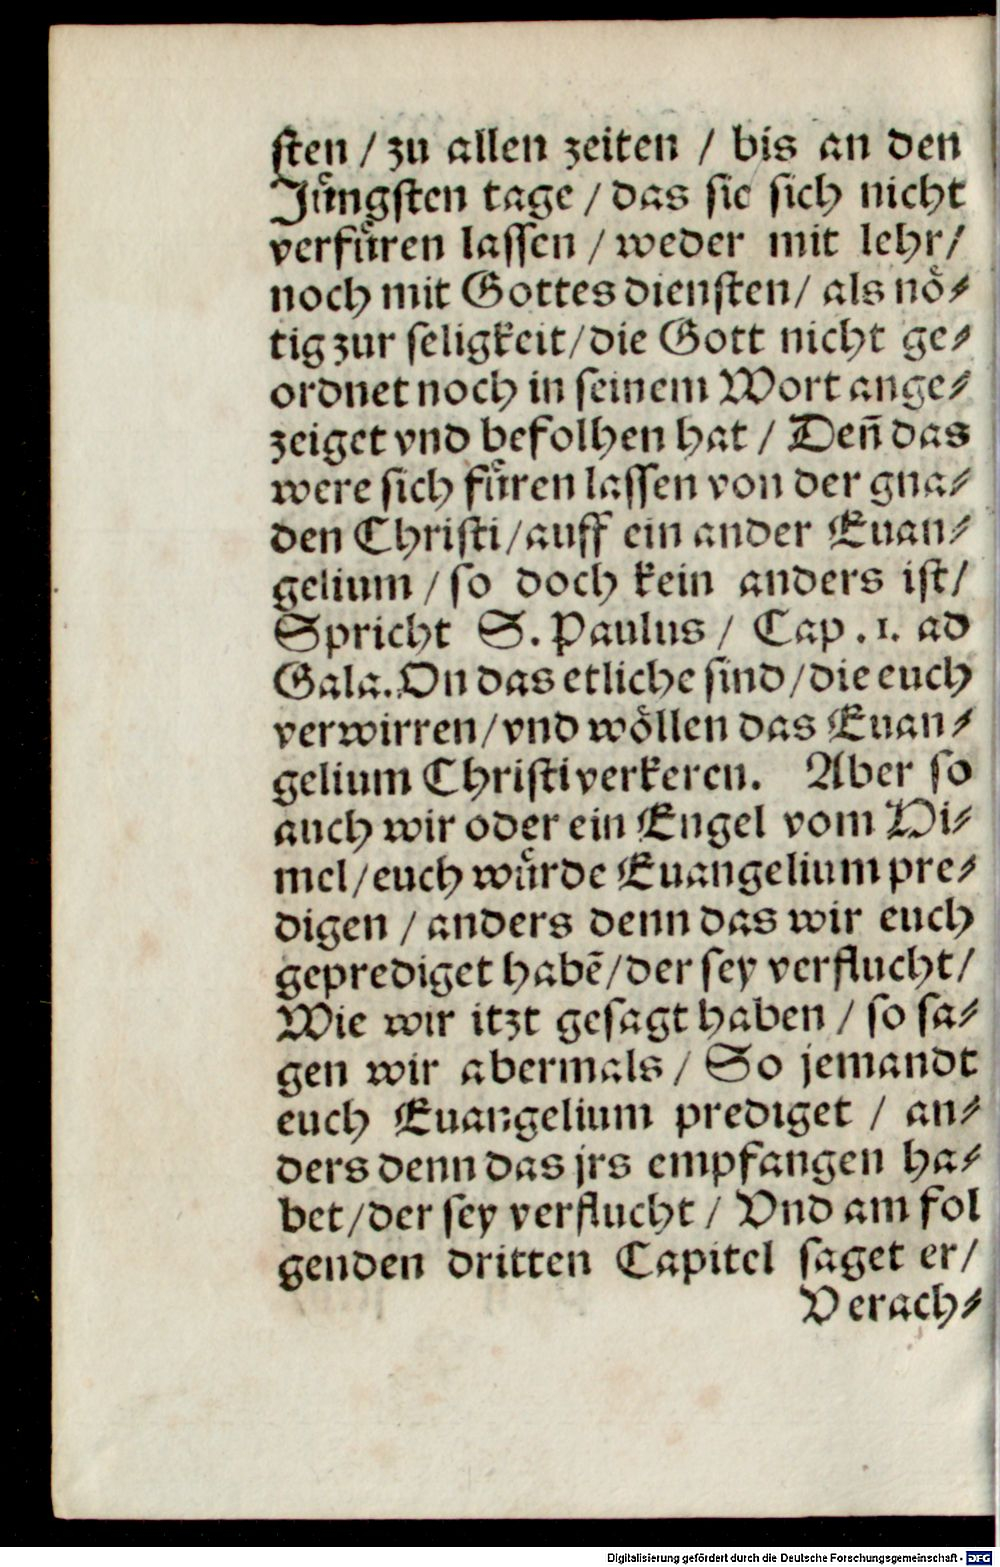 sten / zu allen zeiten / bis an den
Jüngsten tage / das sie sich nicht
verfüren lassen / weder mit lehr /
noch mit Gottes diensten / als nö⸗
tig zur seligkeit / die Gott nicht ge⸗
ordnet noch in seinem Wort ange⸗
zeiget vnd befolhen hat / Deñ das
were sich füren lassen von der gna⸗
den Christi / auff ein ander Euan⸗
gelium / so doch kein anders ist /
Spricht S. Paulus / Cap. 1. ad
Gala. On das etliche sind / die euch
verwirren / vnd wöllen das Euan⸗
gelium Christi verkeren. Aber so
auch wir oder ein Engel vom Hi⸗
mel / euch würde Euangelium pre⸗
digen / anders denn das wir euch
geprediget habẽ / der sey verflucht /
Wie wir itzt gesagt haben / so sa⸗
gen wir abermals / So jemandt
euch Euangelium prediget / an⸗
ders denn das jrs empfangen ha⸗
bet / der sey verflucht / Vnd am fol
genden dritten Capitel saget er /
Verach⸗
Digitalisierung gefördert durch die Deutsche Forschungsgemeinschaft - DFG